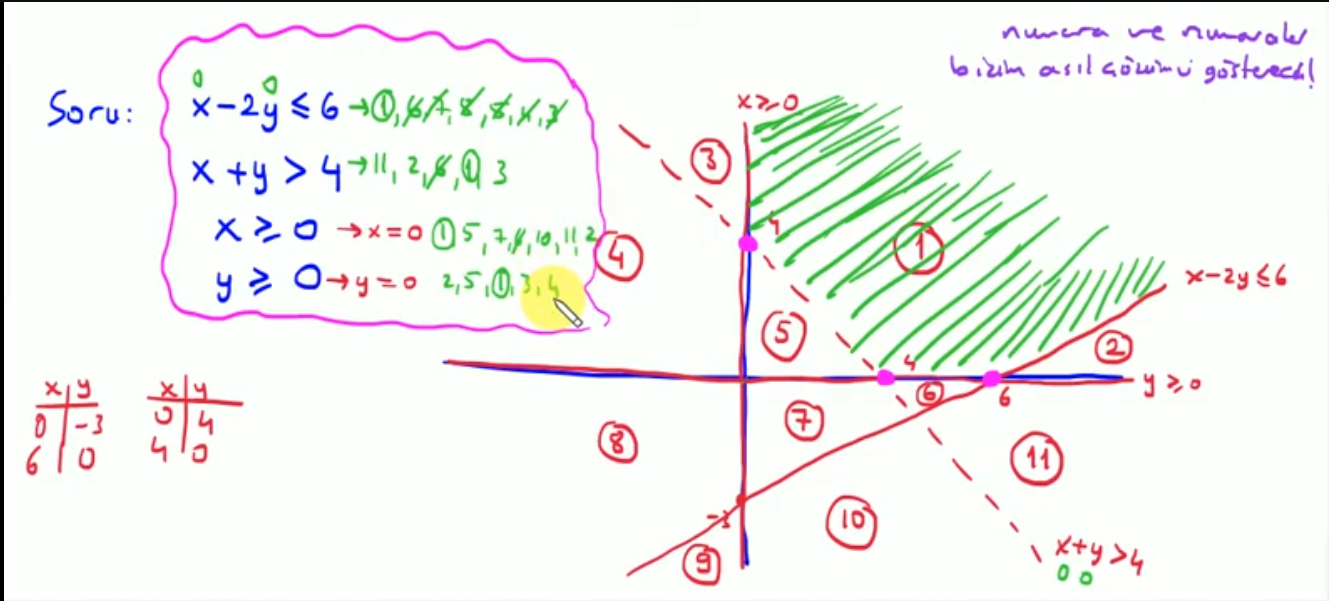 numara ve numaralar
bizim asıl çözümü gösterecek!
Soru:
0 0
x-2y ≤ 6 → ①, 6, 7, 8, 5, 4, 3
x+y > 4 → 11, 2, 6, ① 3
x ≥ 0 → x=0 ① 5, 7, 6, 10, 11, 2
y ≥ 0 → y=0 2, 5, ①, 3, 4
x y
0 -3
6 0
x y
0 4
4 0
x≥0
③
4
④
①
x-2y≤6
⑤
②
4
⑥
6
y≥0
⑦
⑧
⑪
-3
⑩
⑨
x+y>4
0 0